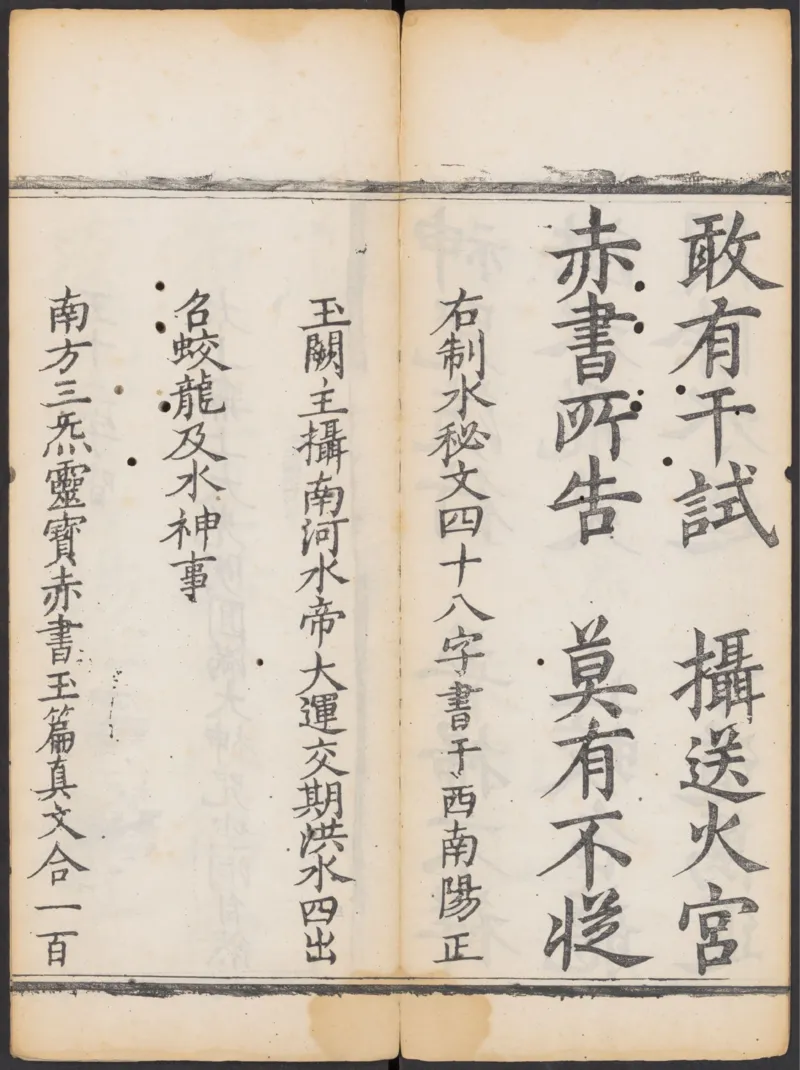 敢有干試　攝送火宮
赤書所告　莫有不從
右制水秘文四十八字書于西南陽正
玉闕主攝南河水帝大運交期洪水四出
召蛟龍及水神事
南方三炁靈寶赤書玉篇真文合一百